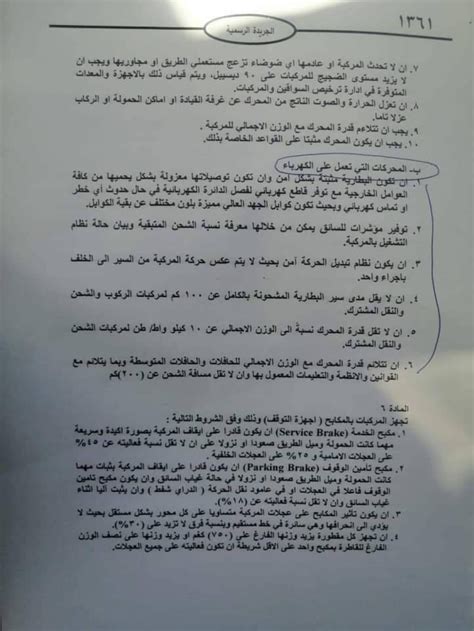 ١٣٦١
الجريدة الرسمية
٧. ان لا تحدث المركبة او عادمها اي ضوضاء تزعج مستعملي الطريق او مجاوريها ويجب ان
لا يزيد مستوى الضجيج للمركبات على ٩٠ ديسيبل، ويتم قياس ذلك بالاجهزة والمعدات
المتوفرة في ادارة ترخيص السواقين والمركبات.
٨. ان تعزل الحرارة والصوت الناتج من المحرك عن غرفة القيادة او اماكن الحمولة او الركاب
عزلا تاما.
٩. يجب ان تتلاءم قدرة المحرك مع الوزن الاجمالي للمركبة.
١٠. يجب ان يكون المحرك مثبتا على القواعد الخاصة بذلك.
ب- المحركات التي تعمل على الكهرباء
١. ان تكون البطارية مثبتة بشكل امن وان تكون توصيلاتها معزولة بشكل يحميها من كافة
العوامل الخارجية مع توفر قاطع كهربائي لفصل الدائرة الكهربائية في حال حدوث أي خطر
او تماس كهربائي وبحيث تكون كوابل الجهد العالي مميزة بلون مختلف عن بقية الكوابل.
٢. توفير مؤشرات للسائق يمكن من خلالها معرفة نسبة الشحن المتبقية وبيان حالة نظام
التشغيل بالمركبة.
٣. ان يكون نظام تبديل الحركة آمن بحيث لا يتم عكس حركة المركبة من السير الى الخلف
بإجراء واحد.
٤. ان لا يقل مدى سير البطارية المشحونة بالكامل عن ١٠٠ كم لمركبات الركوب والشحن
والنقل المشترك.
٥. ان لا تقل قدرة المحرك نسبةً الى الوزن الاجمالي عن ١٠ كيلو واط/ طن لمركبات الشحن
والنقل المشترك.
٦. ان تتلائم قدرة المحرك مع الوزن الاجمالي للحافلات والحافلات المتوسطة وبما يتلائم مع
القوانين والانظمة والتعليمات المعمول بها وان لا تقل مسافة الشحن عن (٢٠٠)كم
المادة ٦
تجهز المركبات بالمكابح ( اجهزة التوقف) وذلك وفق الشروط التالية :
١. مكبح الخدمة (Service Brake) ان يكون قادرا على ايقاف المركبة بصورة اكيدة وسريعة
مهما كانت الحمولة وميل الطريق صعودا او نزولا على ان لا تقل نسبة فعاليته عن ٤٥%
على العجلات الامامية و ٢٥% على العجلات الخلفية
٢. مكبح تأمين الوقوف (Parking Brake) ان يكون قادرا على ايقاف المركبة بثبات مهما
كانت الحمولة وميل الطريق صعودا او نزولا في حالة غياب السائق وان يكون مكبح تامين
الوقوف فاعلا في العجلات او في عامود نقل الحركة ( الدراي شفط ) وان يثبت آليا اثناء
غياب السائق وان لا تقل نسبة فعاليته عن (١٨%).
٣. ان يكون تأثير المكابح على عجلات المركبة متساويا على كل محور بشكل مستقل بحيث لا
يؤدي الى انحرافها وهي سائرة في خط مستقيم وبنسبة فرق لا تزيد على (٣٠%).
٤. ان تجهز كل مقطورة يزيد وزنها الفارغ على (٧٥٠) كغم او يزيد وزنها على نصف الوزن
الفارغ للقاطرة بمكبح واحد على الاقل شريطة ان تكون فعاليته على جميع العجلات.